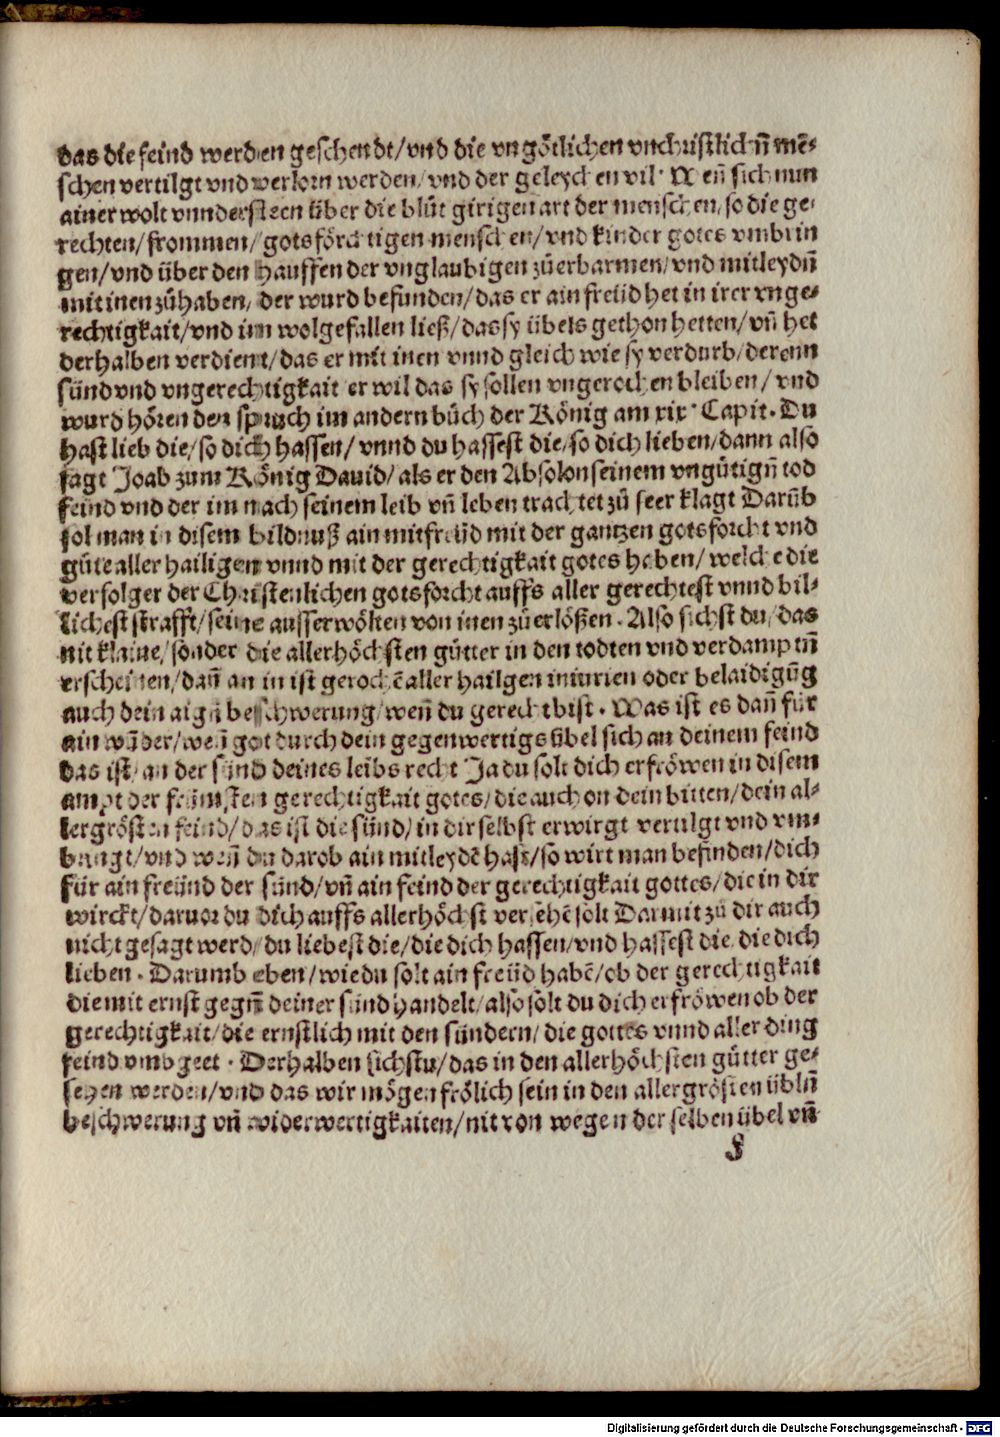 das die feind werden geschendt/vnd die vngötlichen vnchristlichn̄ mē-
schen vertilgt vnd verlorn werden/vnd der geleychen vil. Wen̄ sich nun
ainer wolt vnndersteen über die blůt girigen art der menschen, so die ge-
rechten/frommen/gotsförchtigen menschen/vnd kinder gotes vmbrin
gen/vnd über den hauffen der vnglaubigen zů erbarmen/vnd mitleydn̄
mit inen zů haben/der wurd befunden/das er ain freüd het in irer vnge-
rechtigkait/vnd im wolgefallen ließ/das sy übels gethon hetten/vn̄ het
derhalben verdient/das er mit inen vnnd gleich wie sy verdurb/derenn
sünd vnd vngerechtigkait er wil das sy sollen vngerochen bleiben/vnd
wurd hören den spruch im andern bůch der König am xix. Capit. Du
hast lieb die/so dich hassen/vnnd du hassest die/so dich lieben/dann also
sagt Joab zum König Dauid/als er den Absolon seinem vngütign̄ tod
feind vnd der im nach seinem leib vn̄ leben trachtet zů seer klagt Darūb
sol man in disem bildnuß ain mitfreüd mit der gantzen gotsforcht vnd
güte aller hailigen vnnd mit der gerechtigkait gotes haben/welche die
verfolger der Christenlichen gotsforcht auffs aller gerechtest vnnd bil-
lichest strafft/seine ausserwölten von inen zů erlößen. Also sichst du/das
nit klaine/sonder die allerhöchsten gütter in den todten vnd verdamptn̄
erscheinen/dan̄ an in ist gerochē aller hailgen iniurien oder belaidigūg
auch dein aign̄ beschwerung/wen̄ du gerecht bist. Was ist es dan̄ für
ain wūder/wen̄ got durch dein gegenwertigs übel sich an deinem feind
das ist/an der sünd deines leibs recht Ja du solt dich erfröwen in disem
ampt der frümsten gerechtigkait gotes/die auch on dein bitten/dein al-
lergrösten feind/das ist die sünd/in dir selbst erwirgt vertilgt vnd vm-
bringt/vnd wen̄ du darob ain mitleydē hast/so wirt man befinden/dich
für ain freünd der sünd/vn̄ ain feind der gerechtigkait gottes/die in dir
wirckt/daruor du dich auffs allerhöchst versehē solt Darmit zů dir auch
nicht gesagt werd/du liebest die/die dich hassen/vnd hassest die, die dich
lieben. Darumb eben/wie du solt ain freüd habē/ob der gerechtigkait
die mit ernst gegn̄ deiner sünd handelt/also solt du dich erfröwen ob der
gerechtigkait/die ernstlich mit den sündern/die gottes vnnd aller ding
feind vmbgeet. Derhalben sichstu/das in den allerhöchsten gütter ge-
sehen werden/vnd das wir mögen frölich sein in den allergrösten übln̄
beschwerung vn̄ widerwertigkaiten/nit von wegen der selben übel vn̄
Digitalisierung gefördert durch die Deutsche Forschungsgemeinschaft - DFG